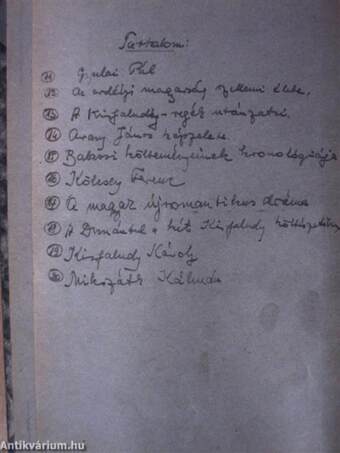 Tartalom:
11 Gyulai Pál
12 Az erdélyi magyarság szellemi élete.
13 A Kisfaludy-regék utánzatai.
14 Arany János képzelete.
15 költeményeinek kronológiája
16 Kölcsey Ferenc
17 A magyar újromantikus dráma
18 A Dunántúl a két Kisfaludy
19 Kisfaludy Károly
20 Mikszáth Kálmán
Antikvárium.hu